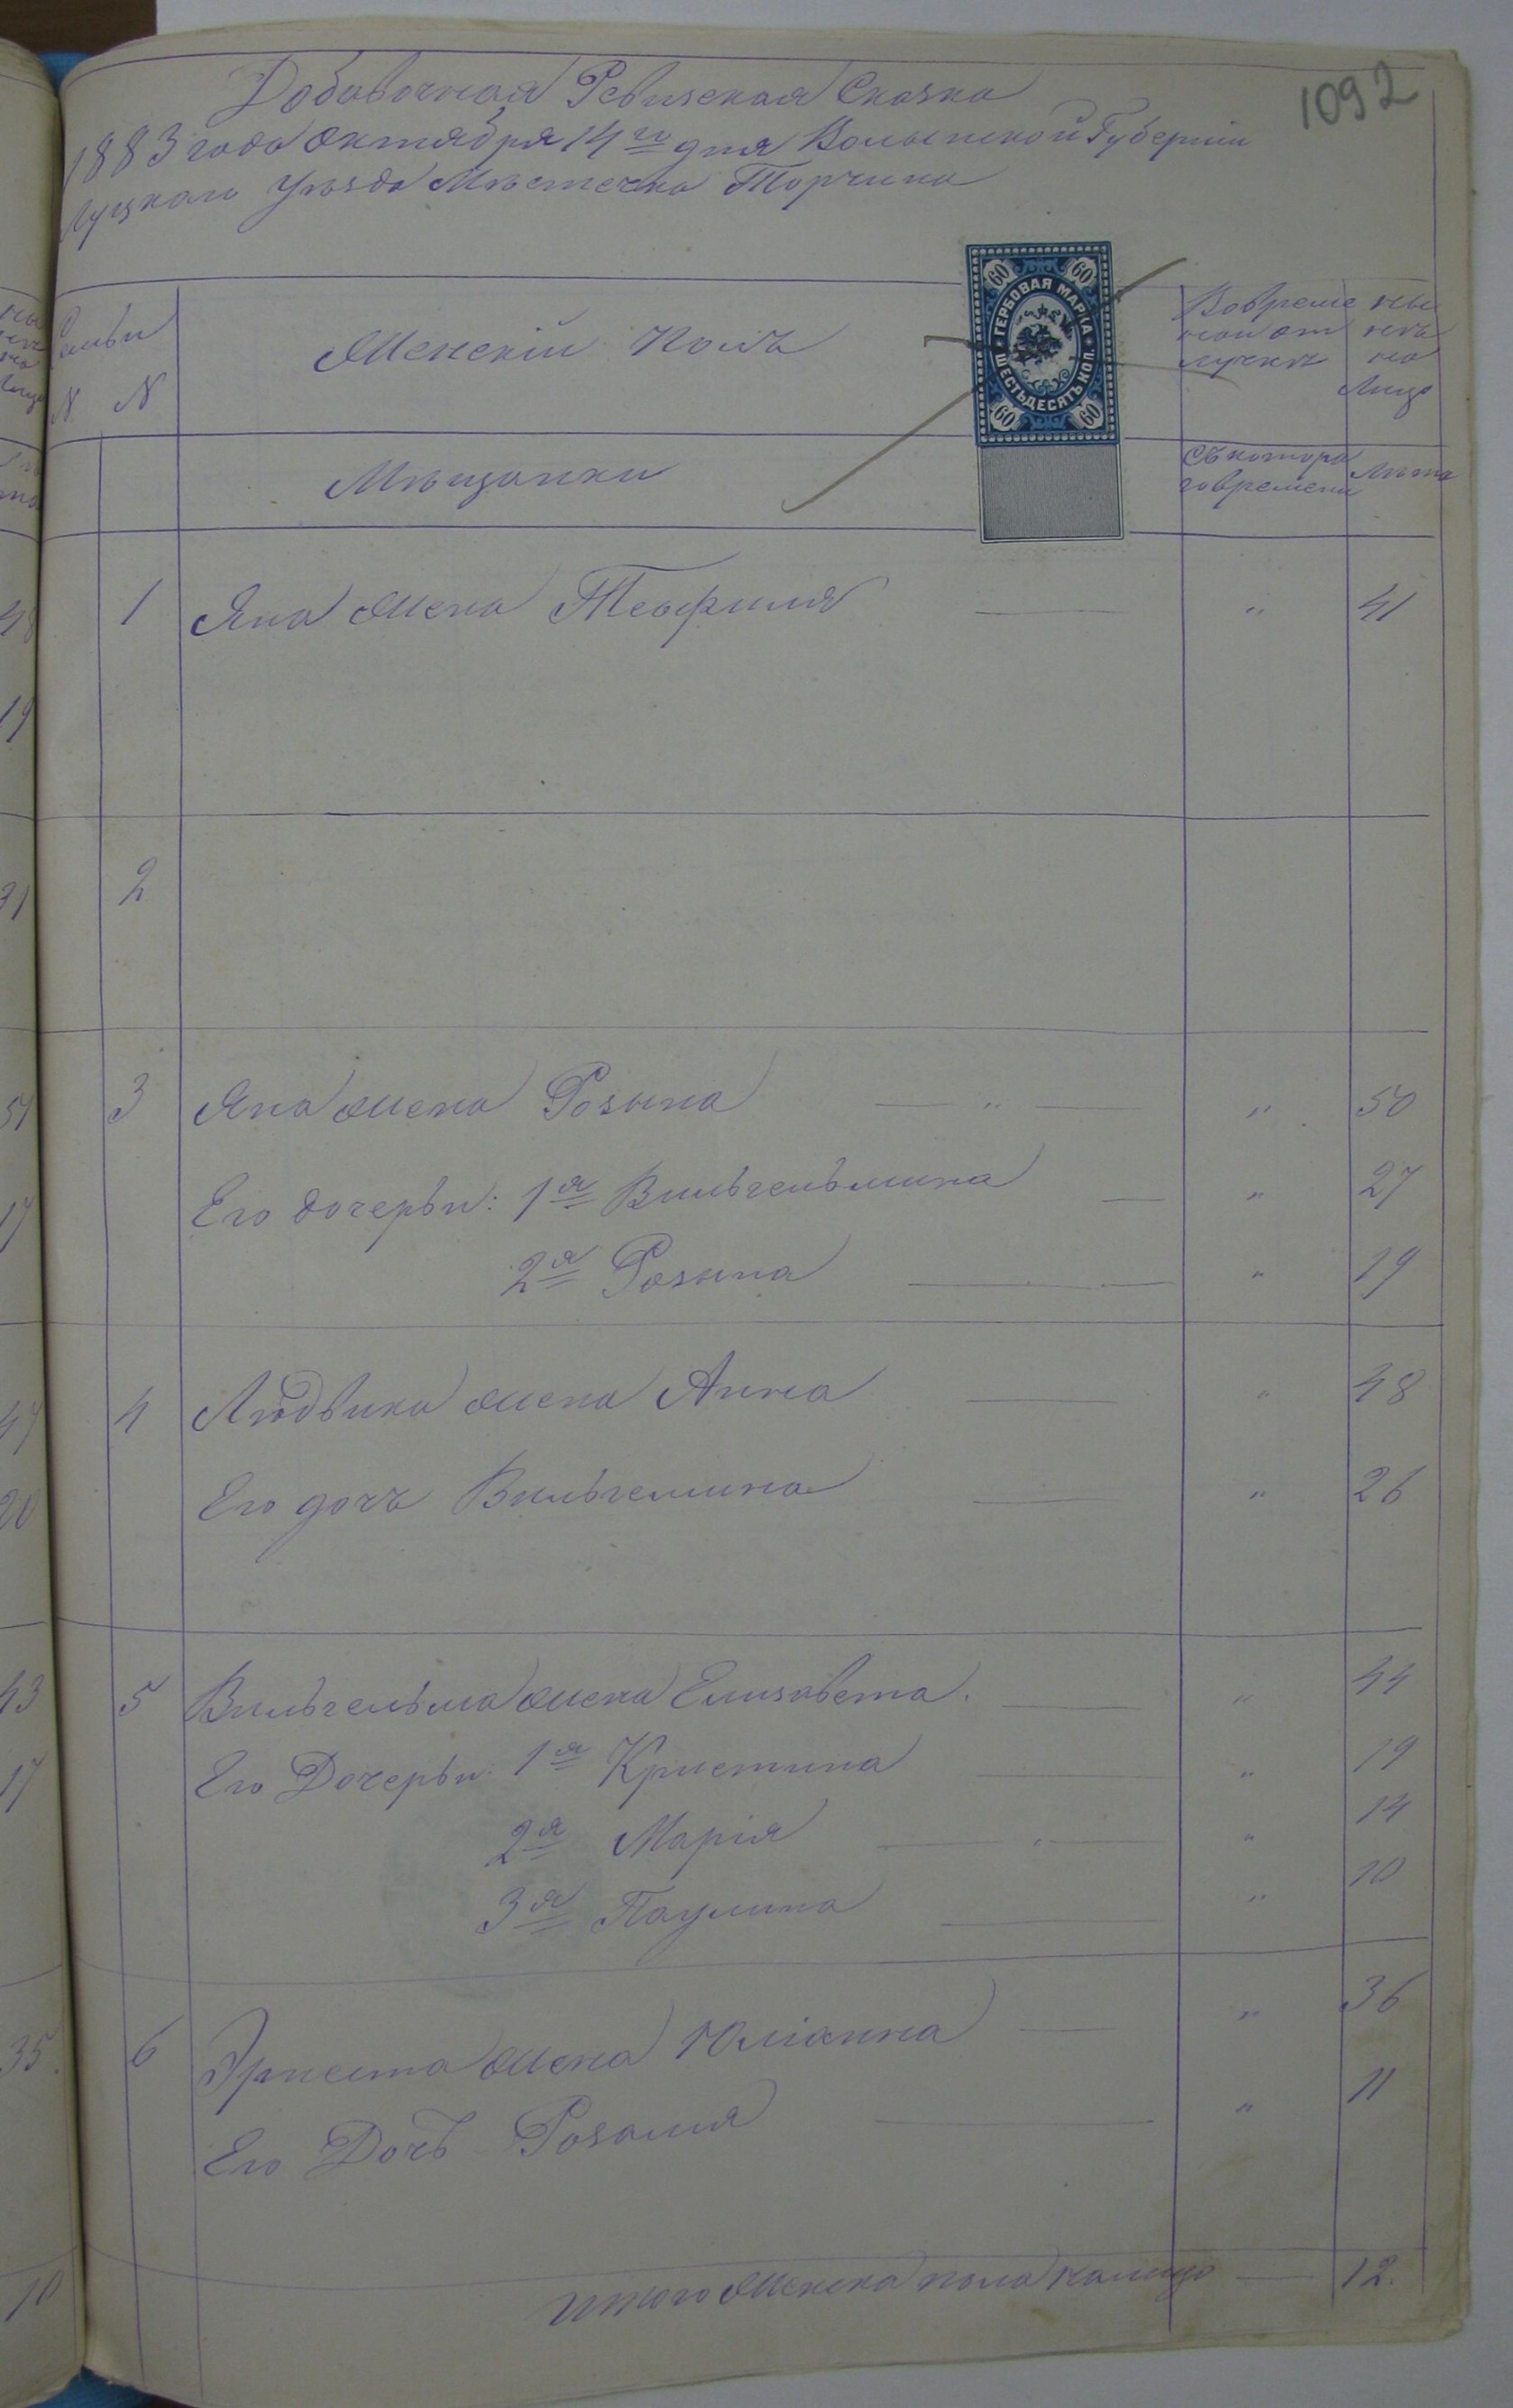 1092
Добавочная Ревизская Сказка
1883 года Октября 14го дня Волынской Губерніи
Луцкаго Уѣзда Мѣстечка Торчина
Семьи
N N
Женскій полъ
Вовремен
ной от
лучкѣ
Ны
нѣ
на
Лицо
ГЕРБОВАЯ МАРКА
ШЕСТЬДЕСЯТЪ КОП.
60 60
60 60
Мѣщанки
Съ котора
го времени
Лѣта
1 Яна Жена Теофилия " 41
2
3 Яна жена Розына " " 50
Его дочерьи: 1я Вильгельмина " 27
2я Розына " 19
4 Людвика жена Анна " 48
Его дочъ Вильгемина " 26
5 Вильгельма жена Елизавета. " 44
Его Дочерьи: 1я Кристина " 19
2я Марія " 14
3я Паулина " 10
6 Эрнеста жена Юліанна " 36
Его Дочь Розалия " 11
Итого Женска пола налицо 12.
48
19
31
51
17
47
20
43
17
35.
10